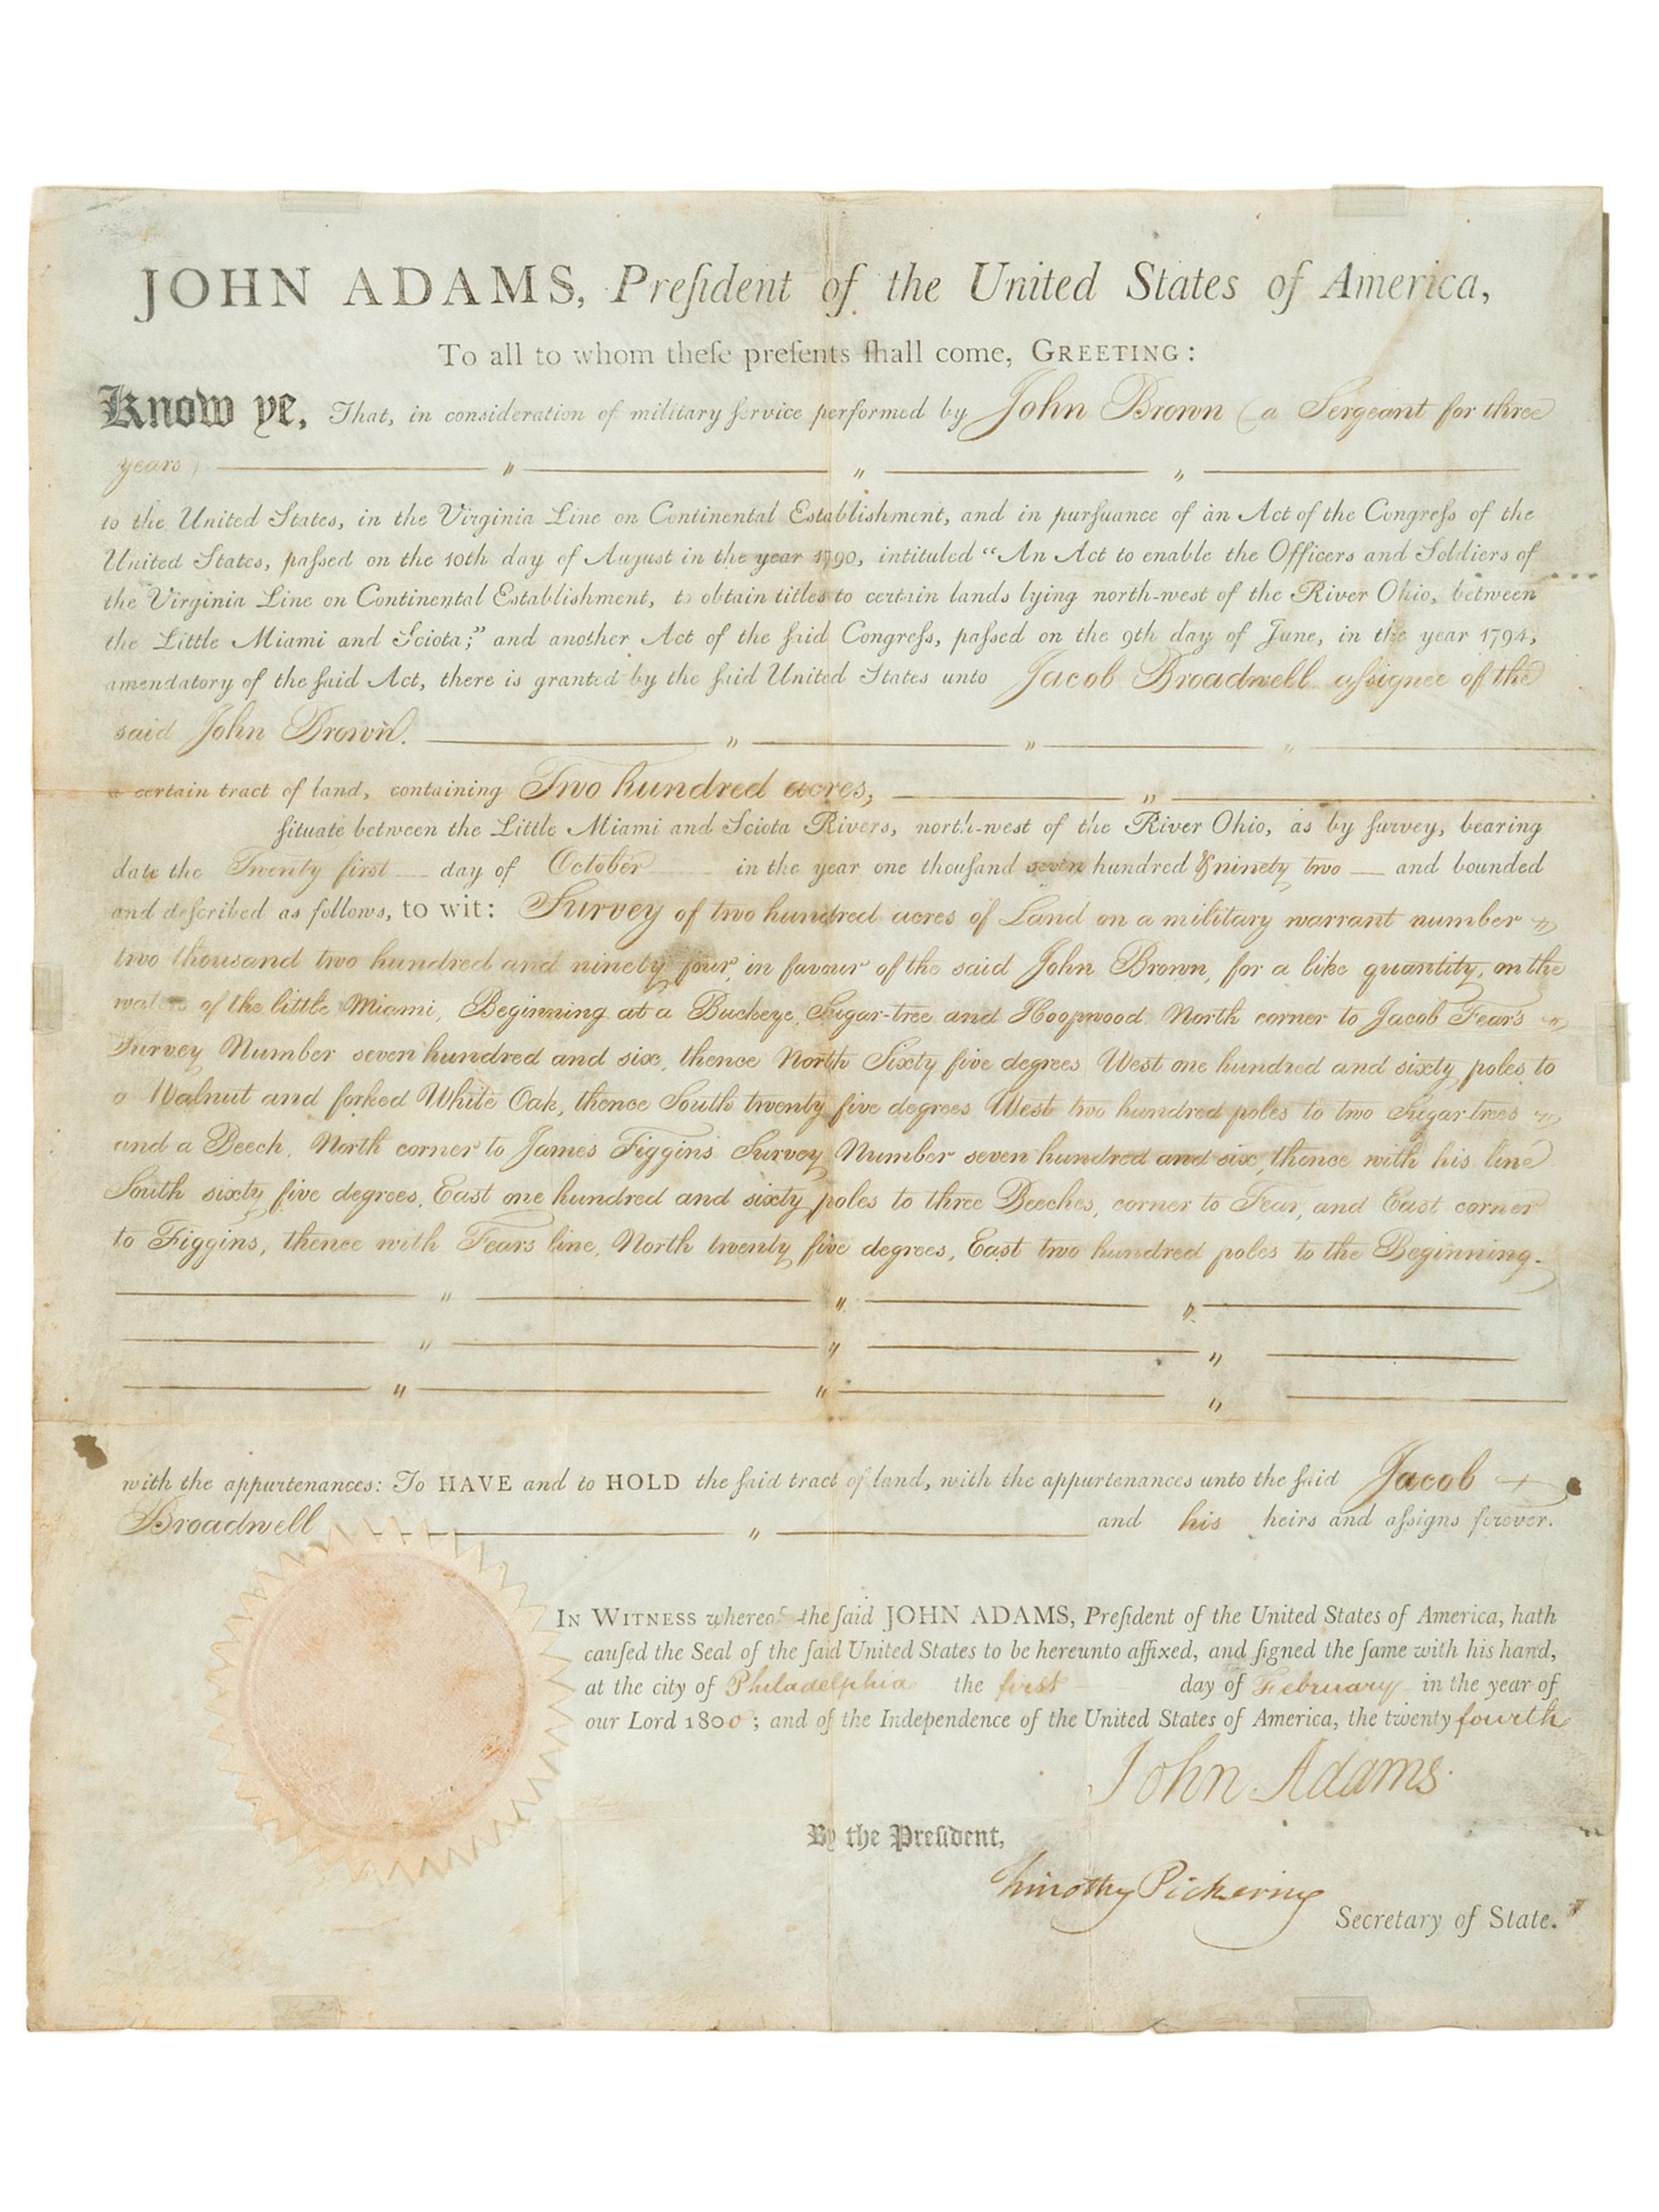 JOHN ADAMS, Preſident of the United States of America,
To all to whom theſe preſents ſhall come, GREETING:
Know ye, That, in conſideration of military ſervice performed by John Brown (a Sergeant for three
years) — " — " — " —
to the United States, in the Virginia Line on Continental Establishment, and in purſuance of an Act of the Congreſs of the
United States, paſsed on the 10th day of August in the year 1790, intituled “An Act to enable the Officers and Soldiers of
the Virginia Line on Continental Establishment, to obtain titles to certain lands lying north-west of the River Ohio, between
the Little Miami and Sciota;” and another Act of the ſaid Congreſs, paſsed on the 9th day of June, in the year 1794,
amendatory of the ſaid Act, there is granted by the ſaid United States unto Jacob Broadwell aſsignee of the
said John Brown. — " — " — " —
a certain tract of land, containing Two hundred acres, — " —
ſituate between the Little Miami and Sciota Rivers, north-west of the River Ohio, as by ſurvey, bearing
date the Twenty first — day of October — in the year one thouſand seven hundred & ninety two — and bounded
and deſcribed as follows, to wit: Survey of two hundred acres of Land on a military warrant number "
two thousand two hundred and ninety four, in favour of the said John Brown, for a like quantity, on the
waters of the little Miami, Beginning at a Buckeye, Sugar-tree and Hoopwood North corner to Jacob Fear's "
Survey Number seven hundred and six, thence North Sixty five degrees West one hundred and sixty poles to
a Walnut and forked White Oak, thence South twenty five degrees West two hundred poles to two Sugar-trees "
and a Beech, North corner to James Figgins Survey Number seven hundred and six, thence with his line
South sixty five degrees, East one hundred and sixty poles to three Beeches, corner to Fear, and East corner
to Figgins, thence with Fears line, North twenty five degrees, East two hundred poles to the Beginning.
— " — " — " —
— " — " — " —
— " — " — " —
with the appurtenances: To HAVE and to HOLD the ſaid tract of land, with the appurtenances unto the ſaid Jacob
Broadwell — " — and his heirs and aſsigns forever.
IN WITNESS whereof the ſaid JOHN ADAMS, Preſident of the United States of America, hath
cauſed the Seal of the ſaid United States to be hereunto affixed, and ſigned the ſame with his hand,
at the city of Philadelphia the first day of February in the year of
our Lord 1800; and of the Independence of the United States of America, the twenty fourth
John Adams.
By the Preſident,
Timothy Pickering
Secretary of State.